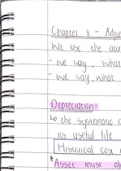 Chapter 8 - Adju
We use the au
- we say, what
- we say, what
Depreciation:
↳ the systematic a
its useful life
Historical cost
* Asset must ab